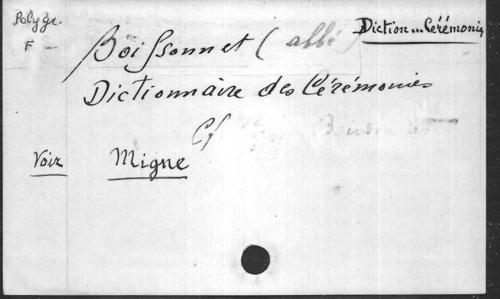 Polygr.
F -
Diction... Cérémonies
Boissonnet (abbé)
Dictionnaire des Cérémonies
Cf
Voir Migne